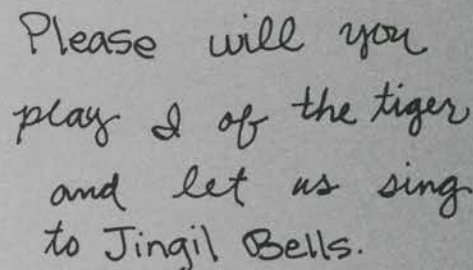 Please will you
play I of the tiger
and let us sing
to Jingil Bells.